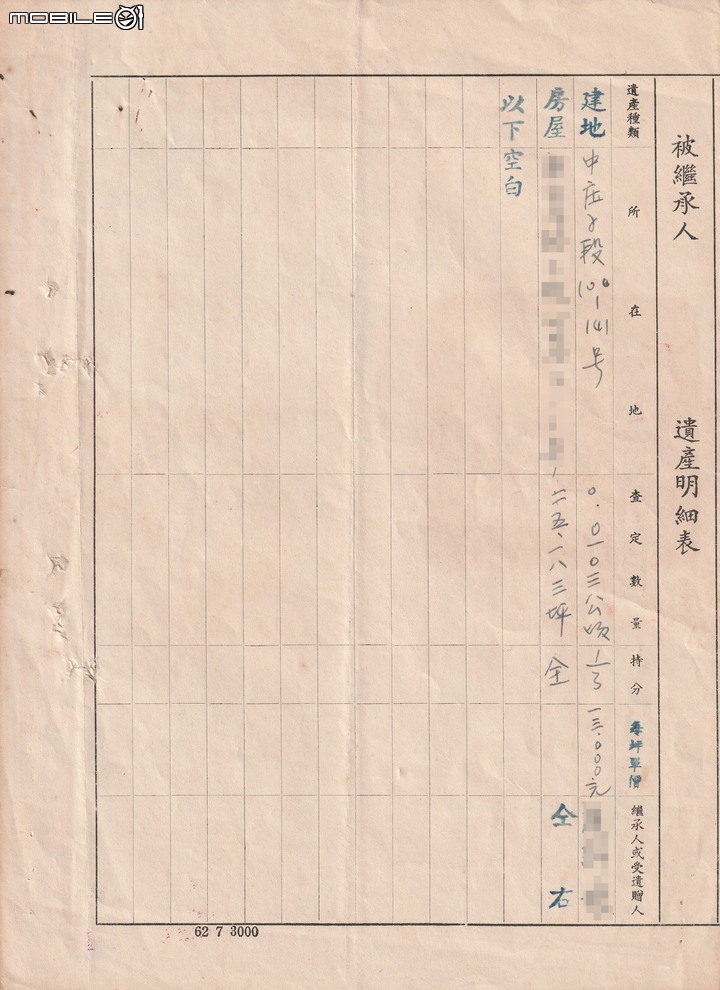 MOBILE01
被繼承人 遺產明細表
遺產種類 所在地 查定數量 持分 每坪單價 繼承人或受遺贈人
建地 中庄子段100-141号 0.0一0三公頃 1/3 一三.000元
房屋 二五.一八三坪 全 仝右
以下空白
62 7 3000